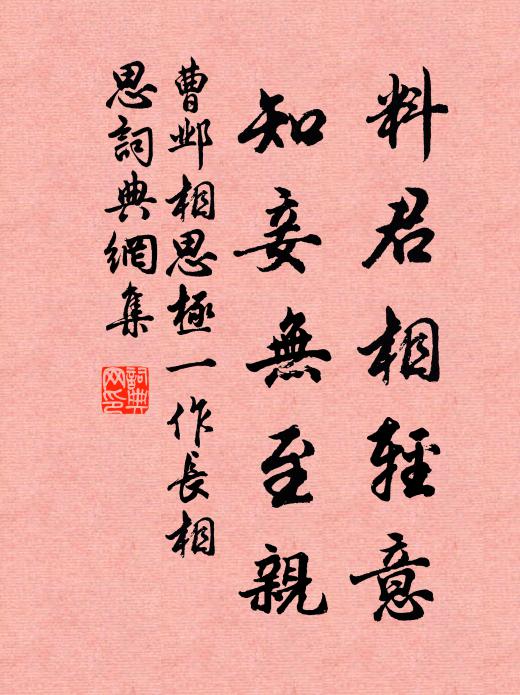 料君相輕意
知妾無至親
曹邺相思極一作長相
思詞典網集
詞典
网印